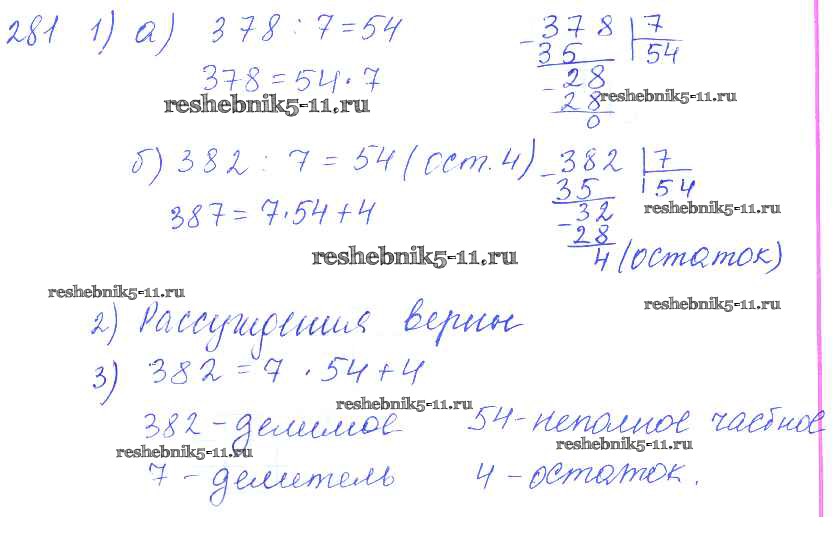 281 1) а) 378 : 7 = 54
378 = 54 · 7
- 378 7
35 54
- 28
28
0
reshebnik5-11.ru
reshebnik5-11.ru
б) 382 : 7 = 54 (ост. 4)
387 = 7 · 54 + 4
- 382 7
35 54
- 32
28
4 (остаток)
reshebnik5-11.ru
reshebnik5-11.ru
reshebnik5-11.ru
reshebnik5-11.ru
2) Рассуждения верны
3) 382 = 7 · 54 + 4
reshebnik5-11.ru
382 - делимое 54 - неполное частное
reshebnik5-11.ru
reshebnik5-11.ru
7 - делитель 4 - остаток.